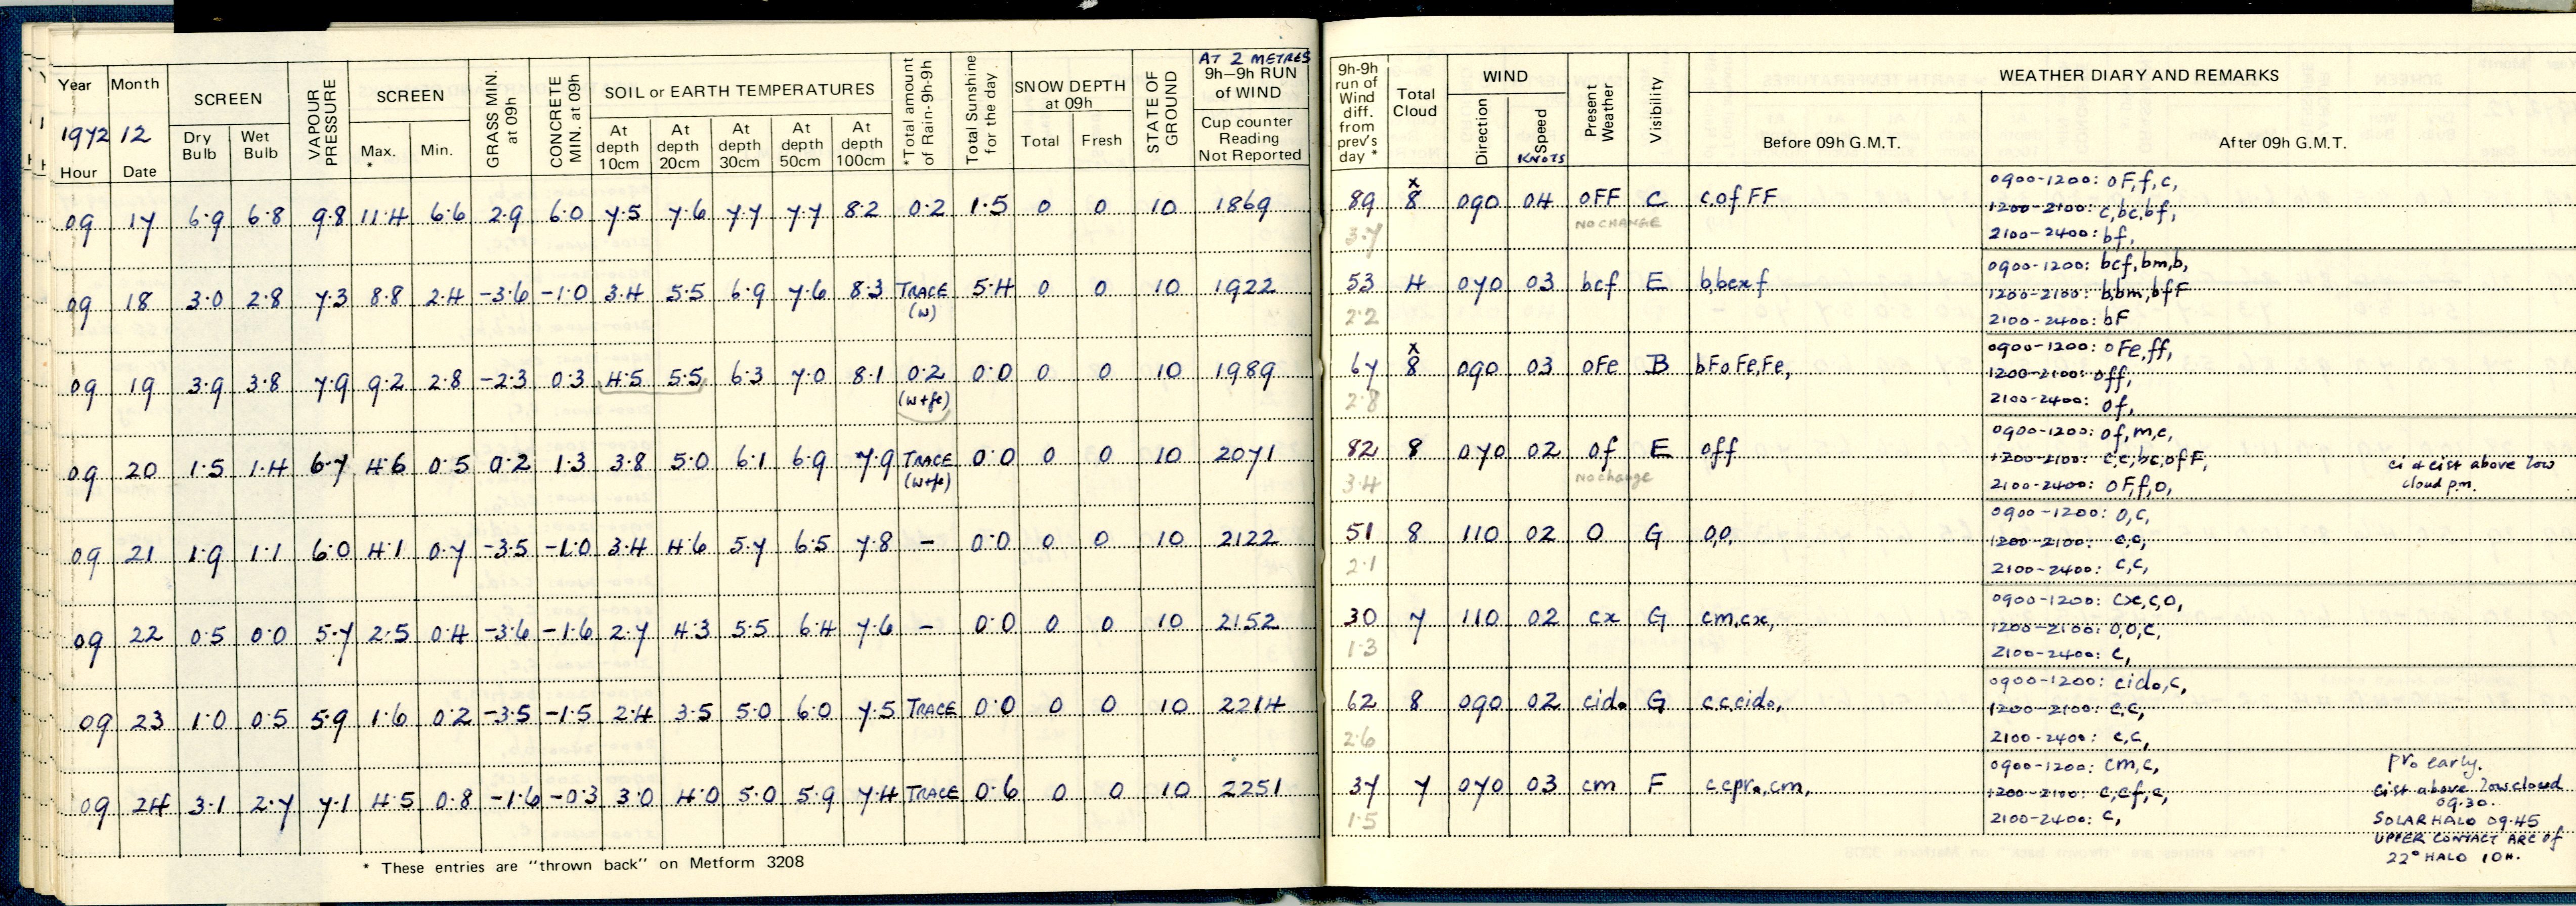 Year Month SCREEN VAPOUR PRESSURE SCREEN GRASS MIN. at 09h CONCRETE MIN. at 09h SOIL or EARTH TEMPERATURES *Total amount of Rain-9h-9h Total Sunshine for the day SNOW DEPTH at 09h STATE OF GROUND AT 2 METRES 9h–9h RUN of WIND
1972 12 Dry Bulb Wet Bulb Max. * Min. At depth 10cm At depth 20cm At depth 30cm At depth 50cm At depth 100cm Total Fresh Cup counter Reading Not Reported
Hour Date
09 17 6.9 6.8 9.8 11.4 6.6 2.9 6.0 7.5 7.6 7.7 7.7 8.2 0.2 1.5 0 0 10 1869
09 18 3.0 2.8 7.3 8.8 2.4 -3.6 -1.0 3.4 5.5 6.9 7.6 8.3 TRACE (w) 5.4 0 0 10 1922
09 19 3.9 3.8 7.9 9.2 2.8 -2.3 0.3 4.5 5.5 6.3 7.0 8.1 0.2 (w+fe) 0.0 0 0 10 1989
09 20 1.5 1.4 6.7 4.6 0.5 0.2 1.3 3.8 5.0 6.1 6.9 7.9 TRACE (w+fe) 0.0 0 0 10 2071
09 21 1.9 1.1 6.0 4.1 0.7 -3.5 -1.0 3.4 4.6 5.7 6.5 7.8 – 0.0 0 0 10 2122
09 22 0.5 0.0 5.7 2.5 0.4 -3.6 -1.6 2.7 4.3 5.5 6.4 7.6 – 0.0 0 0 10 2152
09 23 1.0 0.5 5.9 1.6 0.2 -3.5 -1.5 2.4 3.5 5.0 6.0 7.5 TRACE 0.0 0 0 10 2214
09 24 3.1 2.7 7.1 4.5 0.8 -1.6 -0.3 3.0 4.0 5.0 5.9 7.4 TRACE 0.6 0 0 10 2251
* These entries are "thrown back" on Metform 3208
9h-9h run of Wind diff. from prev's day * Total Cloud WIND Present Weather Visibility WEATHER DIARY AND REMARKS
Direction Speed KNOTS Before 09h G.M.T. After 09h G.M.T.
0900-1200: oF,f,c,
89 x 8 090 04 oFF C c,ofFF 1200-2100: c,bc,bf,
3.7 NO CHANGE 2100-2400: bf,
0900-1200: bcf,bm,b,
53 4 070 03 bcf E b,bcxf 1200-2100: b,bm,bfF
2.2 2100-2400: bF
0900-1200: oFe,ff,
67 x 8 090 03 oFe B bFoFe,Fe, 1200-2100: off,
2.8 2100-2400: of,
0900-1200: of,m,c,
82 8 070 02 of E off 1200-2100: c,c,bc,ofF, ci & cist above low
3.4 No change 2100-2400: oF,f,o, cloud p.m.
0900-1200: o,c,
51 8 110 02 O G o,o, 1200-2100: c,c,
2.1 2100-2400: c,c,
0900-1200: cx,c,o,
30 7 110 02 cx G cm,cx, 1200-2100: o,o,c,
1.3 2100-2400: c,
0900-1200: cido,c,
62 8 090 02 cido G c,c,cido, 1200-2100: c,c,
2.6 2100-2400: c,c,
0900-1200: cm,c, pro early.
37 7 070 03 cm F c,cpro,cm, 1200-2100: c,cf,c, cist above low cloud 09.30.
1.5 2100-2400: c, SOLAR HALO 09.45
UPPER CONTACT ARC of
22° HALO 10H.